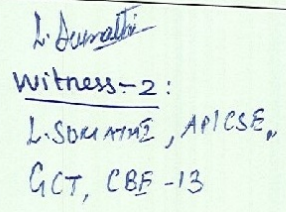 L. Sumathi
Witness-2:
L. SUMATHI, AP/CSE,
GCT, CBE-13